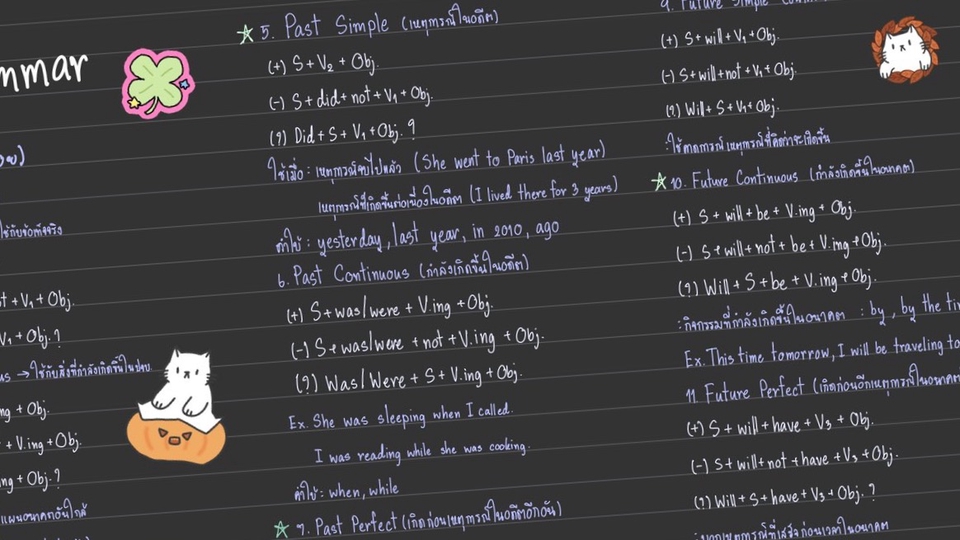 mmar
ใช้กับข้อเท็จจริง
+ V₁ + Obj.
V₁ + Obj. ?
→ ใช้กับสิ่งที่กำลังเกิดขึ้น
ng + Obj.
+ V.ing + Obj.
ng + Obj. ?
5. Past Simple (เหตุการณ์ในอดีต)
(+) S + V₂ + Obj.
(-) S + did + not + V₁ + Obj.
(?) Did + S + V₁ + Obj. ?
ใช้เมื่อ : เหตุการณ์จบไปแล้ว (She went to Paris last year)
เหตุการณ์ที่เกิดขึ้นต่อเนื่องในอดีต (I lived there for 3 years)
คำใช้ : yesterday, last year, in 2010, ago
6. Past Continuous (กำลังเกิดขึ้นในอดีต)
(+) S + was/were + V.ing + Obj.
(-) S + was/were + not + V.ing + Obj.
(?) Was/Were + S + V.ing + Obj.
Ex. She was sleeping when I called.
I was reading while she was cooking.
คำใช้ : when, while
7. Past Perfect (เกิดก่อนเหตุการณ์ในอดีตอีกอัน)
9. Future Simple
(+) S + will + V₁ + Obj.
(-) S + will + not + V₁ + Obj.
(?) Will + S + V₁ + Obj.
: ใช้คาดการณ์ เหตุการณ์ที่คิดว่าจะเกิดขึ้น
10. Future Continuous (กำลังเกิดขึ้นในอนาคต)
(+) S + will + be + V.ing + Obj.
(-) S + will + not + be + V.ing + Obj.
(?) Will + S + be + V.ing + Obj.
: กิจกรรมที่กำลังเกิดขึ้นในอนาคต : by, by the
Ex. This time tomorrow, I will be traveling to
11. Future Perfect (เกิดก่อนอีกเหตุการณ์ในอนาคต
(+) S + will + have + V₃ + Obj.
(-) S + will + not + have + V₃ + Obj.
(?) Will + S + have + V₃ + Obj. ?